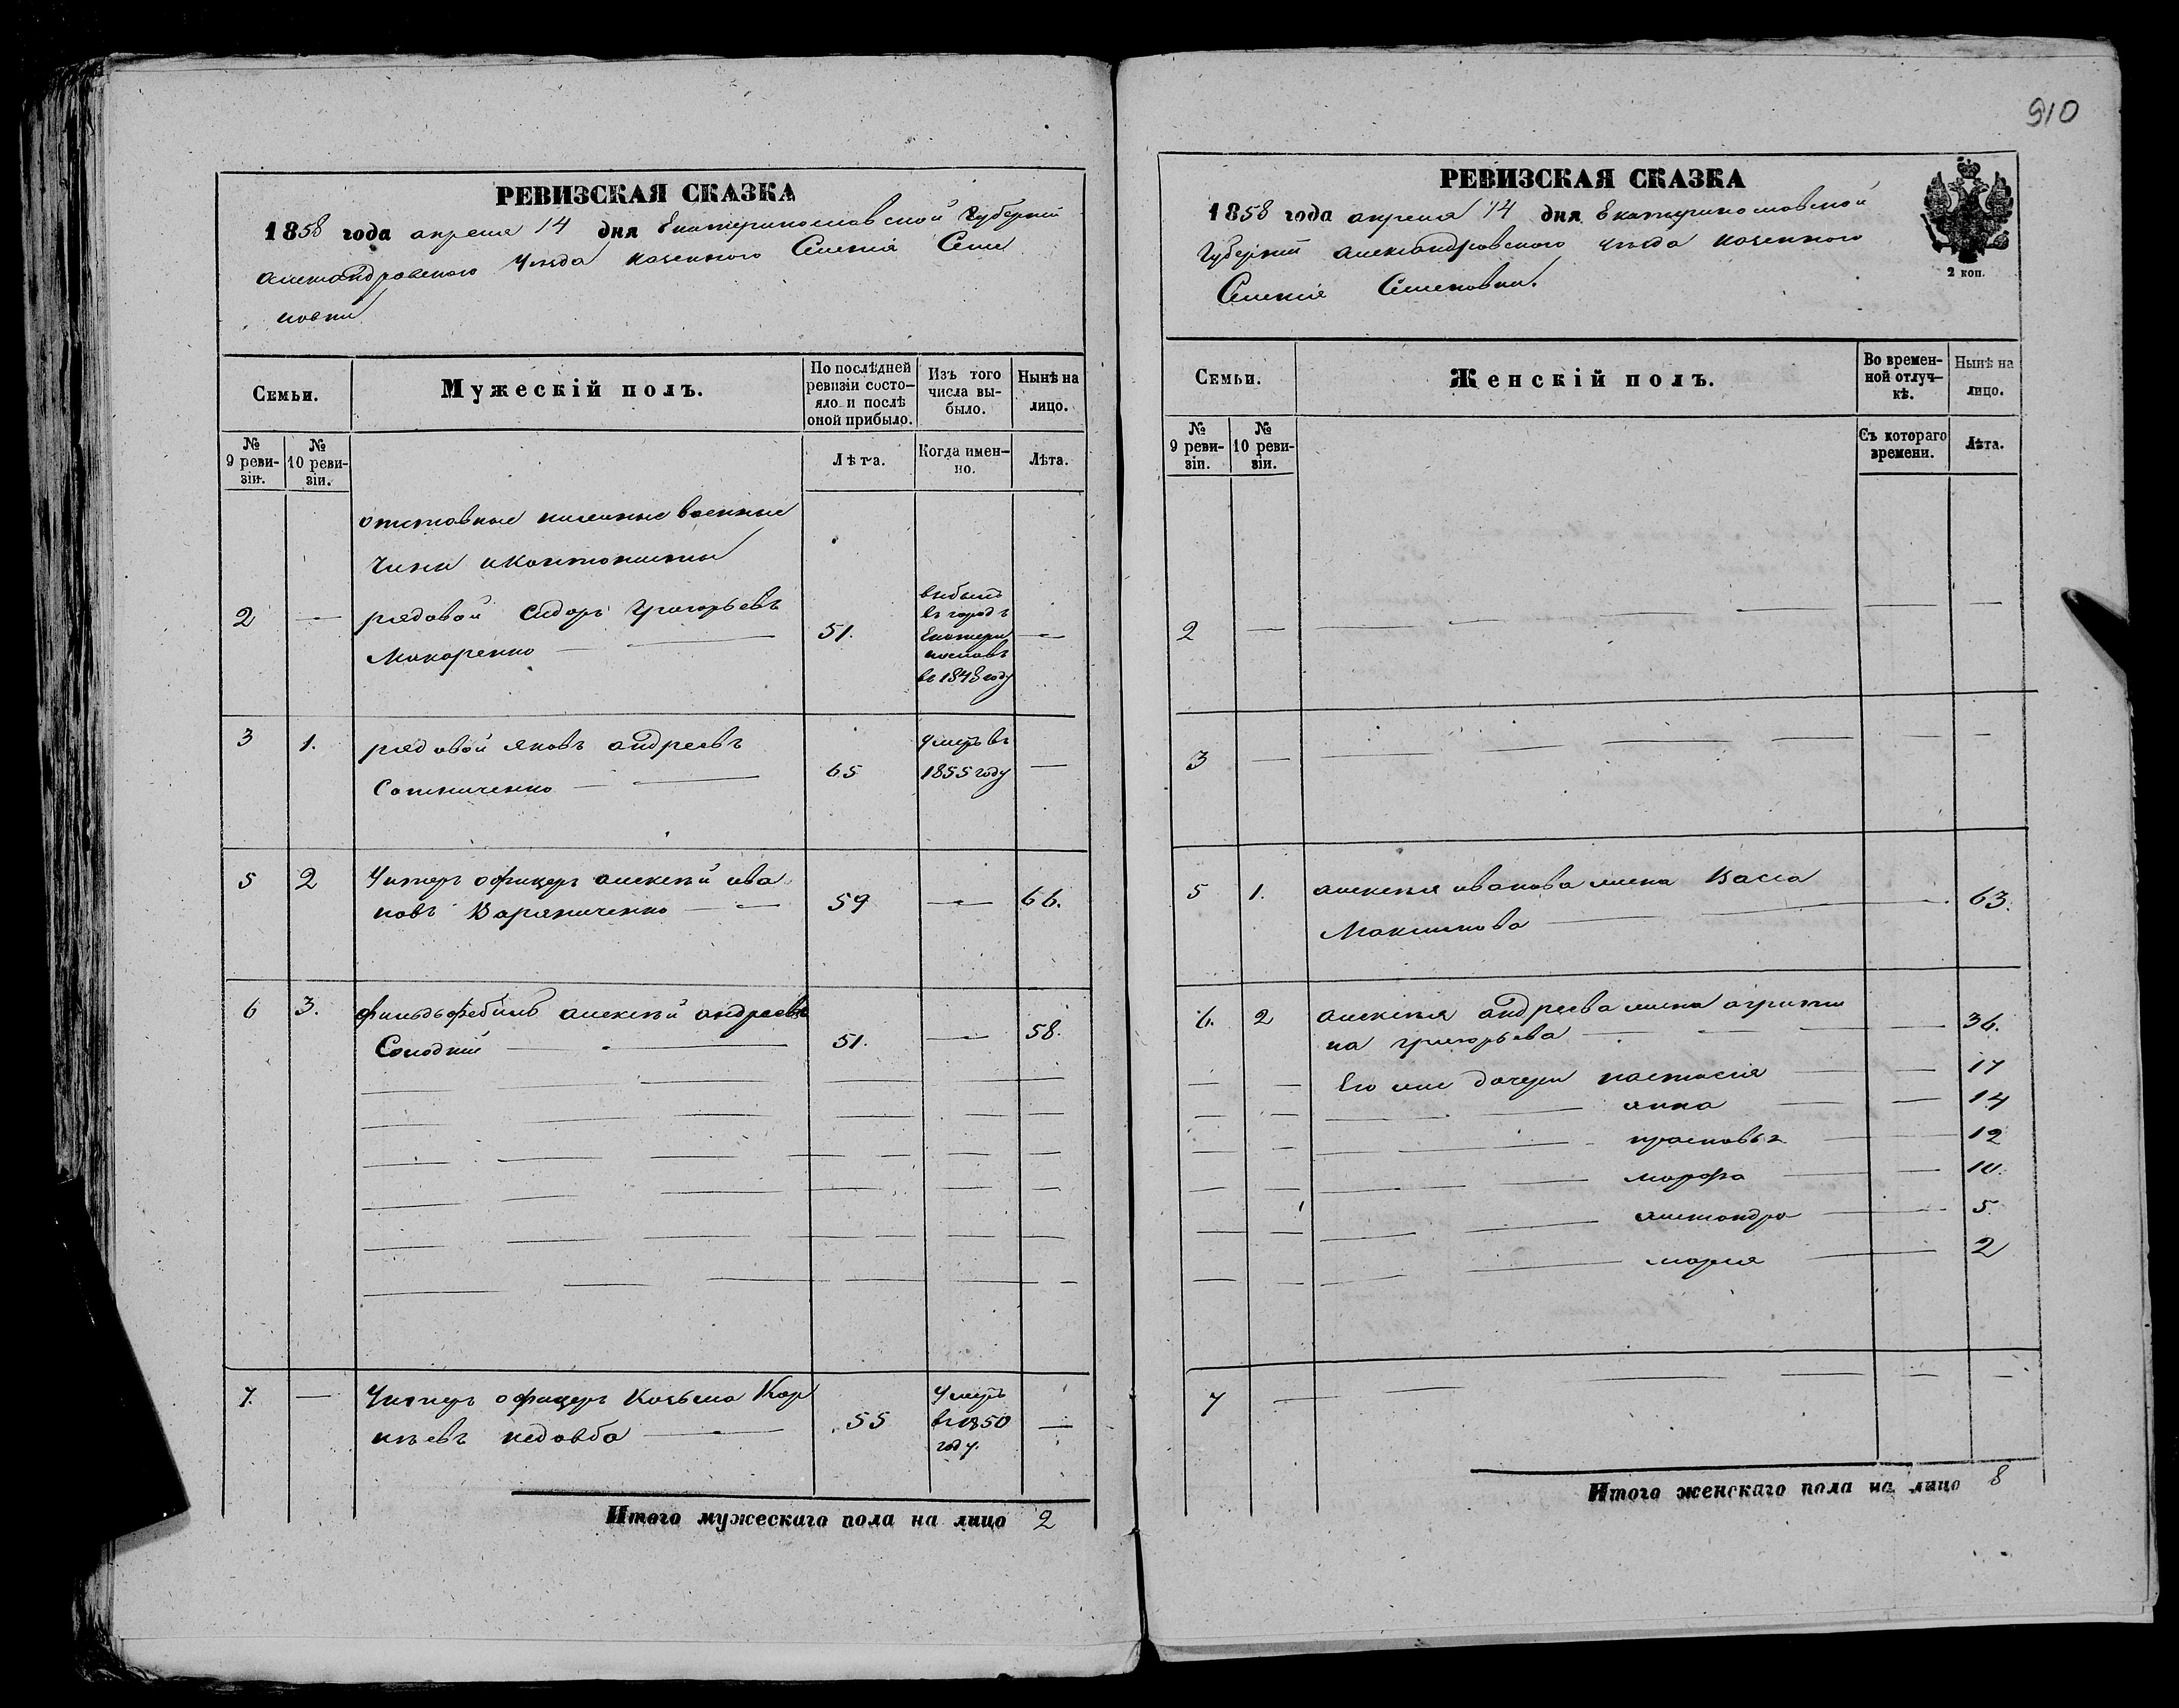 910
РЕВИЗСКАЯ СКАЗКА
1858 года апреля 14 дня Екатеринославской Губернии
александровского Уезда казенного Селенія Семе
новки
Семьи.
Мужескій полъ.
По послѣдней ревизіи состо-яло и послѣ оной прибыло.
Изъ того числа вы-было.
Нынѣ на лицо.
№ 9 реви-зіи.
№ 10 реви-зіи.
Лѣта.
Когда имен-но.
Лѣта.
отставные нижние военные
Чины и Кантонисты
2 — рядовой Сидоръ Григорьевъ
Макаренко — — 51. выбылъ въ городъ Екатери нославъ въ 1848 году —
3 1. рядовой яковъ андреевъ
Сотниченко — — 65 Умеръ въ 1855 году —
5 2 Унтеръ офицеръ алексѣй ива
новъ Вараниченко — — 59 — 66.
6 3. фильдъфебиль алексѣй андреевъ
Солодкій — — 51. — 58.
7. — Унтеръ офицеръ Козьма Кор
нѣевъ недовба — 55 Умеръ въ 1850 году. —
Итого мужескаго пола на лицо 2
РЕВИЗСКАЯ СКАЗКА
1858 года апреля 14 дня Екатеринославской
Губерніи александровского уезда казенного
Селенія Семеновки.
2 коп.
Семьи.
Женскій полъ.
Во времен-ной отлуч-кѣ.
Нынѣ на лицо.
№ 9 реви-зіи.
№ 10 реви-зіи.
Съ котораго времени.
Лѣта.
2 — — — — — — —
3 — — — — — — —
5 1. алексѣя иванова жена Васса
Максимова — — 63.
6. 2 алексѣя андреева жена агрипи
на григорьева — — — — — 36.
— — Его же дочери настасія — — 17
— — — — анна — — 14
— — — — прасковья — 12
— — — — марфа — — 10.
— — — — александра — 5.
— — — — марія — 2
7 — — — — — — —
Итого женскаго пола на лицо 8